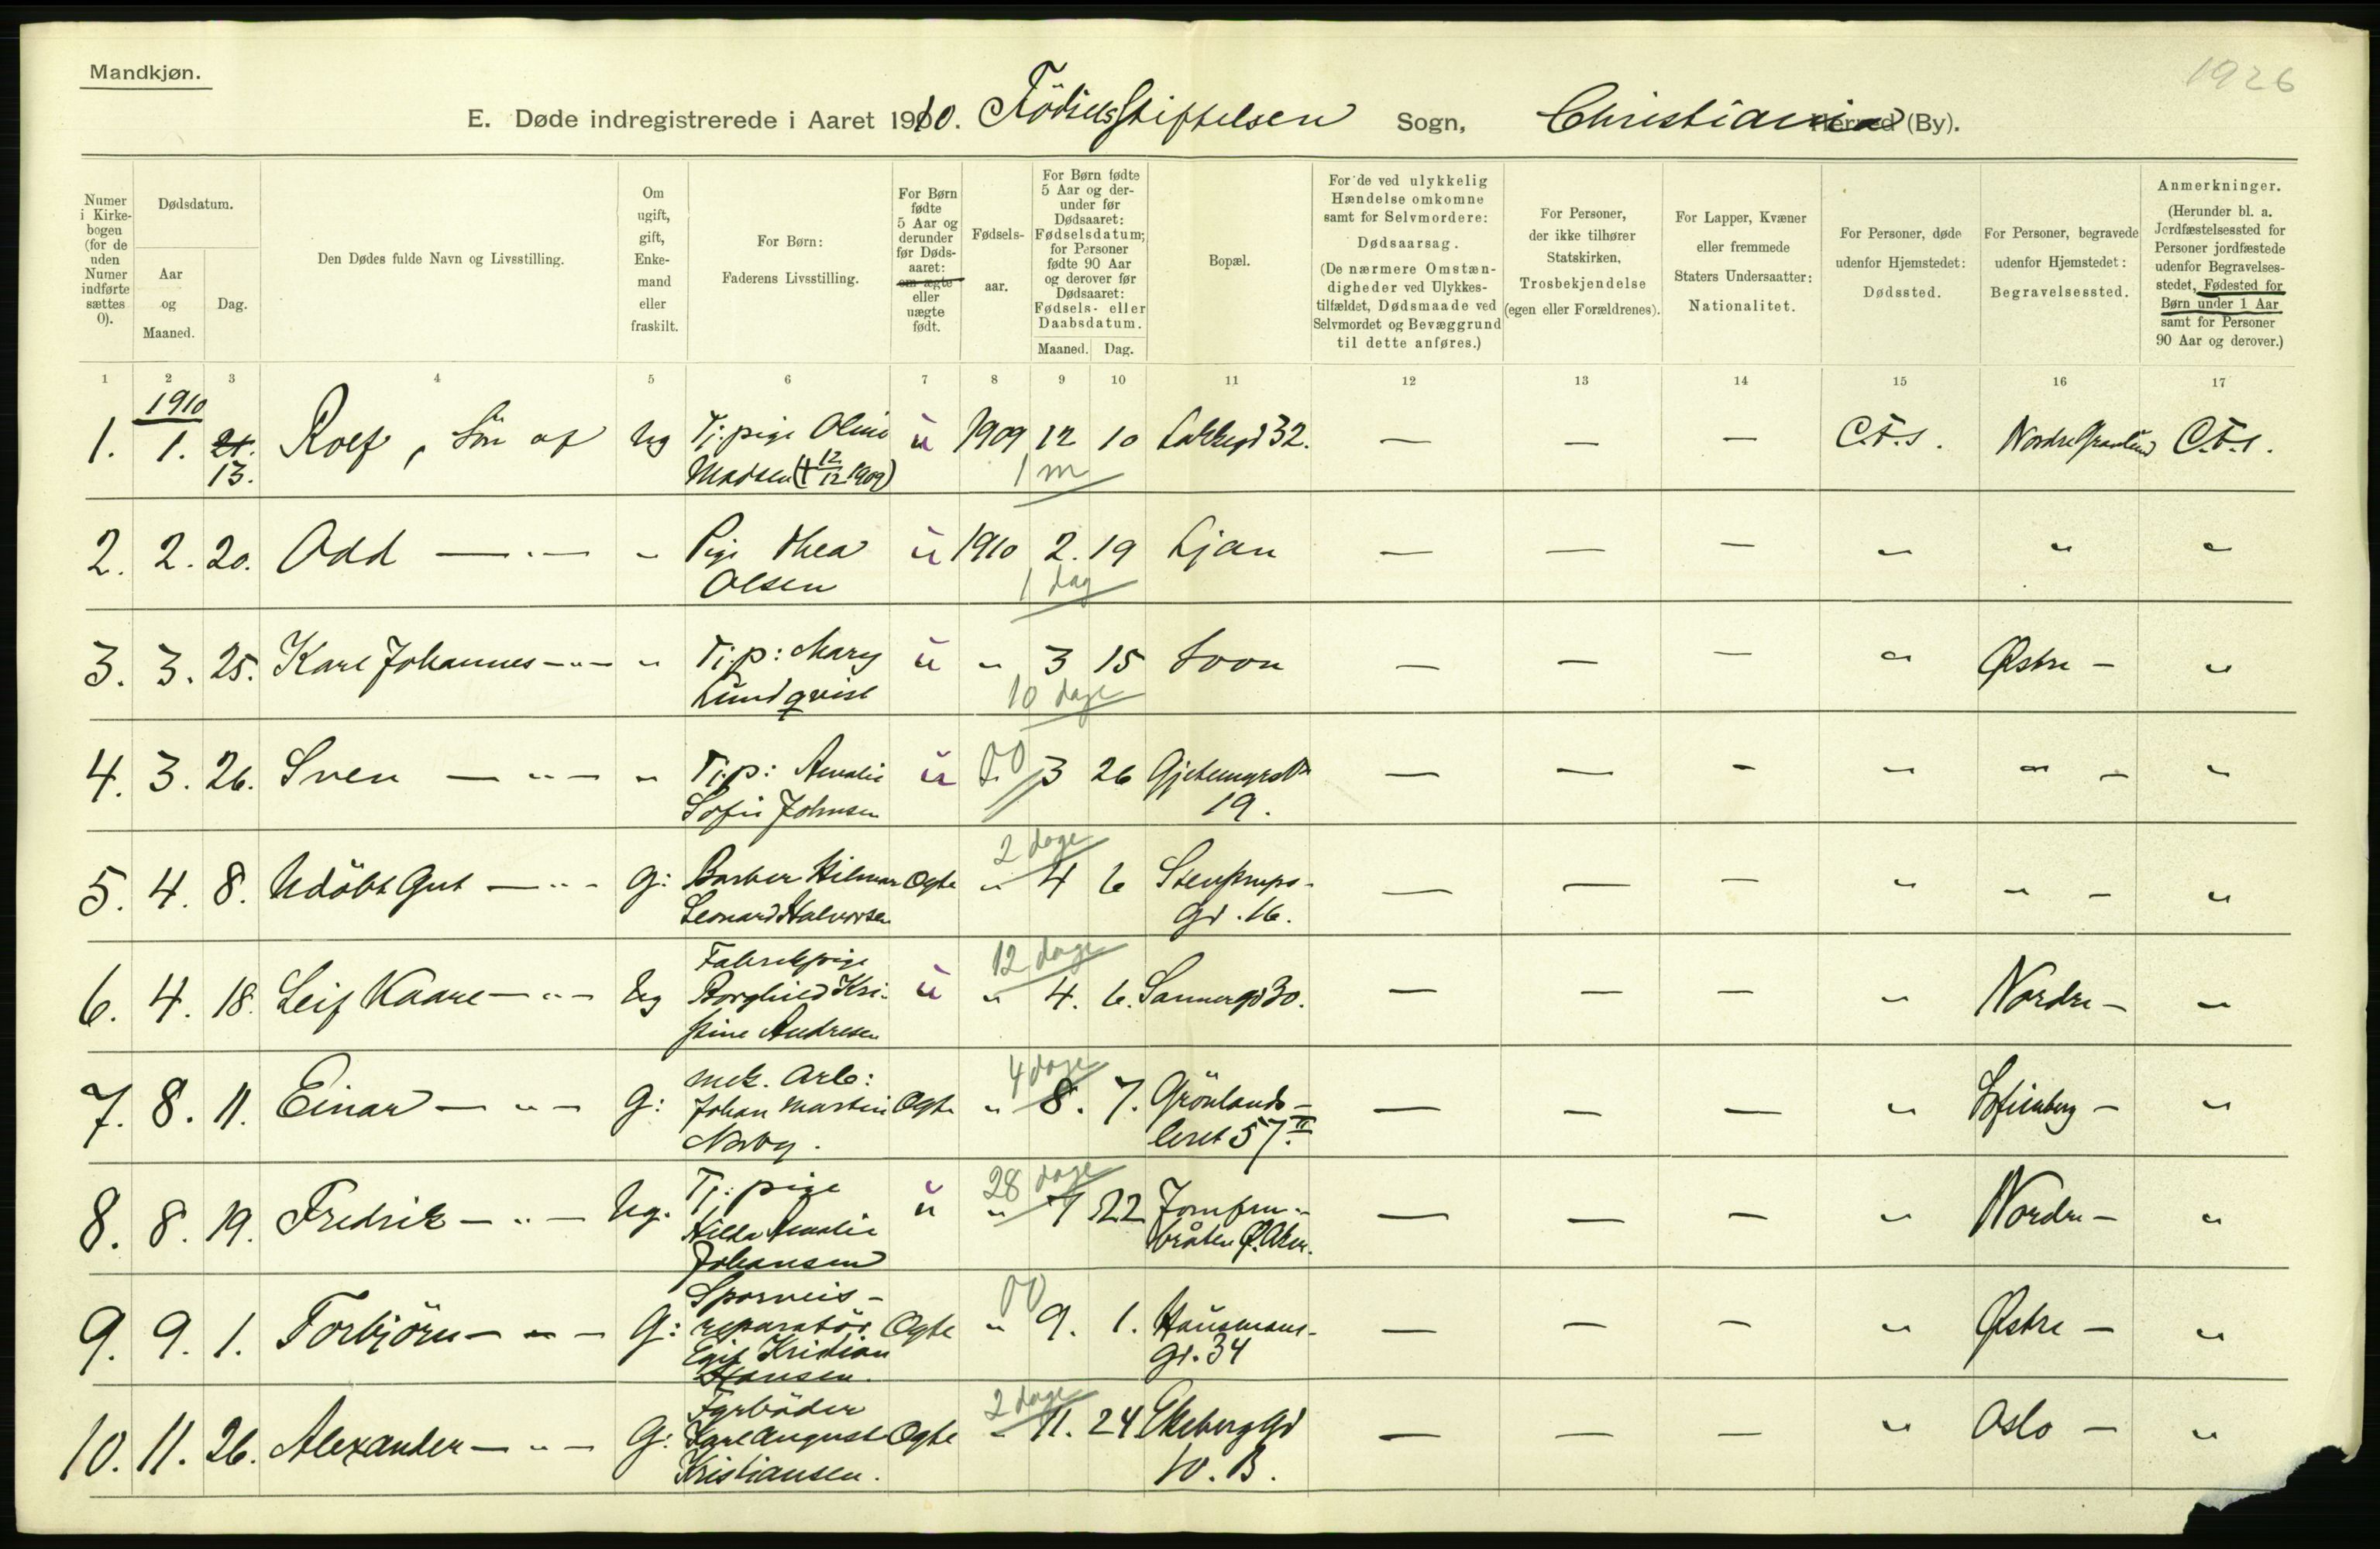 Mandkjøn.
1926
E. Døde indregistrerede i Aaret 1910. FödselsStiftelsen Sogn, Christiania Herred (By).
Numer i Kirke-bogen (for de uden Numer indførte sættes 0).
Dødsdatum.
Aar og Maaned.
Dag.
Den Dødes fulde Navn og Livsstilling.
Om ugift, gift, Enke-mand eller fraskilt.
For Børn: Faderens Livsstilling.
For Børn fødte 5 Aar og derunder før Døds-aaret: om ægte eller uægte født.
Fødsels-aar.
For Børn fødte 5 Aar og der-under før Dødsaaret: Fødselsdatum; for Personer fødte 90 Aar og derover før Dødsaaret: Fødsels- eller Daabsdatum.
Maaned. Dag.
Bopæl.
For de ved ulykkelig Hændelse omkomne samt for Selvmordere: Dødsaarsag. (De nærmere Omstæn-digheder ved Ulykkes-tilfældet, Dødsmaade ved Selvmordet og Bevæggrund til dette anføres.)
For Personer, der ikke tilhører Statskirken, Trosbekjendelse (egen eller Forældrenes).
For Lapper, Kvæner eller fremmede Staters Undersaatter: Nationalitet.
For Personer, døde udenfor Hjemstedet: Dødssted.
For Personer, begravede udenfor Hjemstedet: Begravelsessted.
Anmerkninger. (Herunder bl. a. Jordfæstelsessted for Personer jordfæstede udenfor Begravelses-stedet, Fødested for Børn under 1 Aar samt for Personer 90 Aar og derover.)
1 2 3 4 5 6 7 8 9 10 11 12 13 14 15 16 17
1910
1. 1. 21. Rolf, Sön af Ug Tj: pige Oline ü 1909 12 10 Lakkegd 32. — — — C.F.S. Nordre Gravlund C.F.S.
13. Madsen († 12/12 1909) 1 m
2. 2. 20. Odd — " — " Pige Thea ü 1910 2. 19 Ljan — — — " " "
Olsen 1 dag
3. 3. 25. Karl Johannes — " — " Tj.p: Mary ü " 3 15 Soon — — — " Østre — "
Lundqvist 10 dage
4. 3. 26. Sven — " — " Tj.p: Amalie ü " 00 3 26 — — — " " — "
Sofie Johnsen 19.
5. 4. 8. Udöbt Gut — " — G: Barber Hilmar Ogte " 2 dage 4 6 Stenstrups- — — — " " — "
Leonard Halvorsen gd. 16.
6. 4. 18. Leif Kaare — " — Ug Fabrikpige ü " 12 dage 4. 6. Sannergd 30. — — — " Nordre — "
Borghild Kri-
stine Andresen
7. 8. 11. Einar — " — G: mek. Arb: Ogte " 4 dage 8. 7. Grönlands- — — — " Sofienberg — "
Johan Martin leret 57 II.
Norby.
8. 8. 19. Fredrik — " — Ug. Tj: pige ü " 28 dage 7 22 Jomfru- — — — " Nordre — "
Hilda Amalie bråten Ø. Aker.
Johansen
9. 9. 1. Torbjörn — " — G: Sporveis- Ogte " 00 9. 1. Hausmans- — — — " Østre — "
reparatör gd. 34
Egil Kristian
Hansen.
10. 11. 26. Alexander — " — G: Fyrböder Ogte " 2 dage 11. 24 Ekeberg Gd — — — " Oslo — "
Karl August 10. B.
Kristiansen.